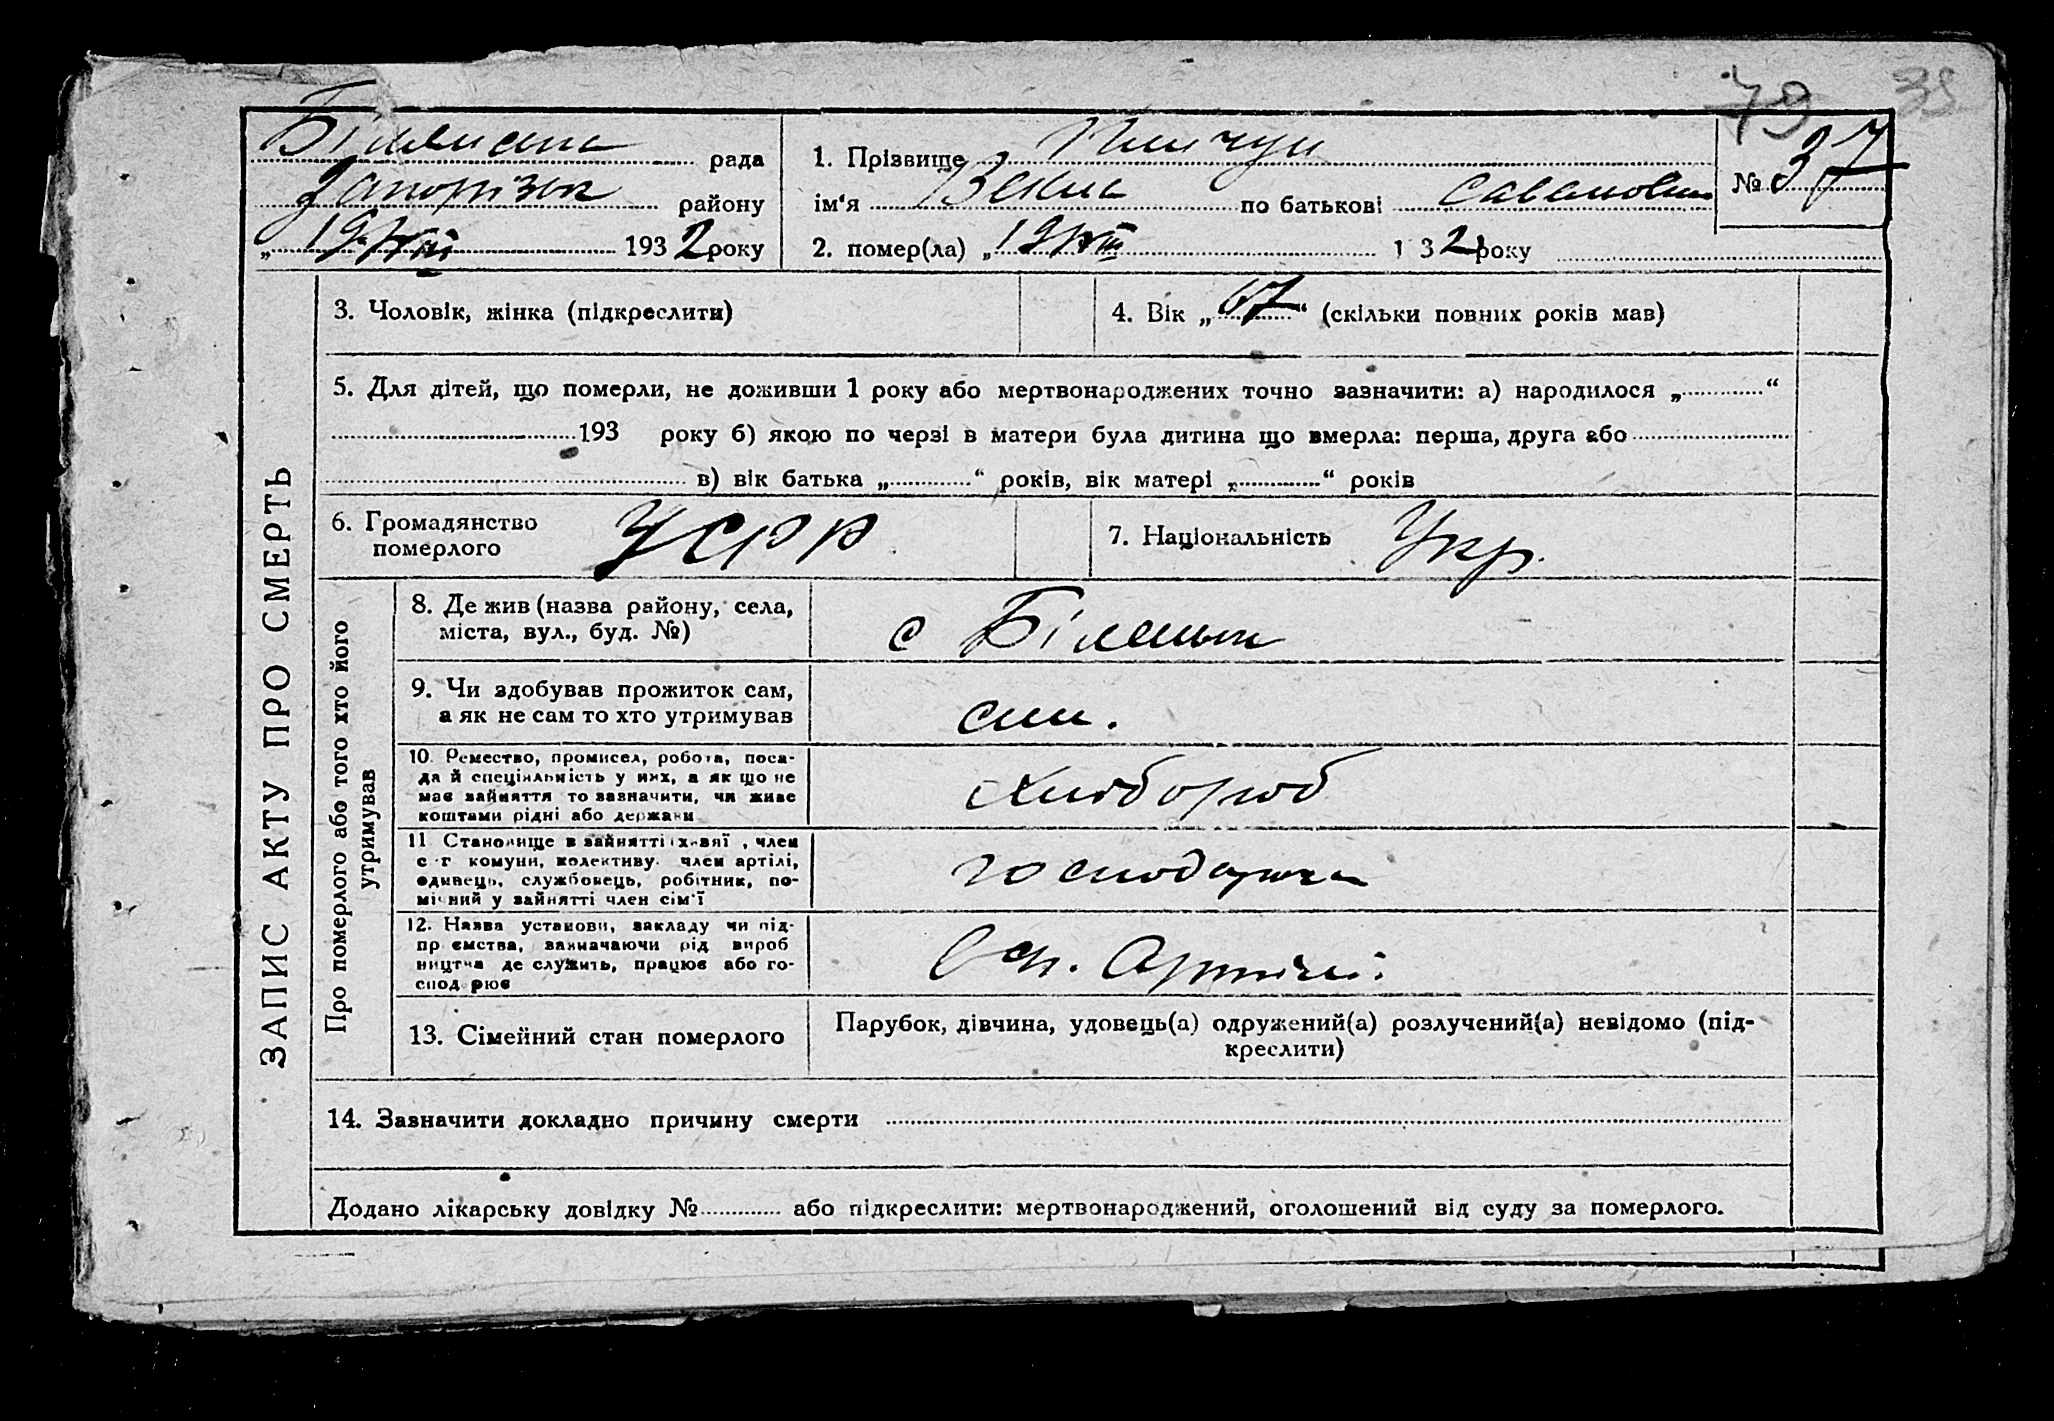 79 35
Біленська рада
Запорізьк району
„ 19/VIII 1932 року
1. Прізвище
ім'я по батькові Савапович
№ 37
2. помер(ла) „ 19/VIII 1 32 року
ЗАПИС АКТУ ПРО СМЕРТЬ
3. Чоловік, жінка (підкреслити)
4. Вік „ 67 “ (скільки повних років мав)
5. Для дітей, що померли, не доживши 1 року або мертвонароджених точно зазначити: а) народилося „ “
193 року б) якою по черзі в матери була дитина що вмерла: перша, друга або
в) вік батька „ “ років, вік матері „ “ років
6. Громадянство
померлого
УСРР
7. Національність Укр.
Про померлого або того хто його
утримував
8. Де жив (назва району, села,
міста, вул., буд. №)
с Біленьк
9. Чи здобував прожиток сам,
а як не сам то хто утримував
син.
10. Ремество, промисел, робота, поса-
да й спеціяльність у них, а як що не
має зайняття то зазначити, чи живе
коштами рідні або держави
хлібороб
11 Становище в зайнятті: хазяї , член
с-г комуни, колективу. член артілі,
одинець, службовець, робітник, по-
мічний у зайнятті член сім'ї
12. Назва установи, закладу чи під-
пр ємства, зазначаючи рід вироб
ництва де служить, працює або го-
спод рює
Артілі
13. Сімейний стан померлого
Парубок, дівчина, удовець(а) одружений(а) розлучений(а) невідомо (під-
креслити)
14. Зазначити докладно причину смерти
Додано лікарську довідку № або підкреслити: мертвонароджений, оголошений від суду за померлого.